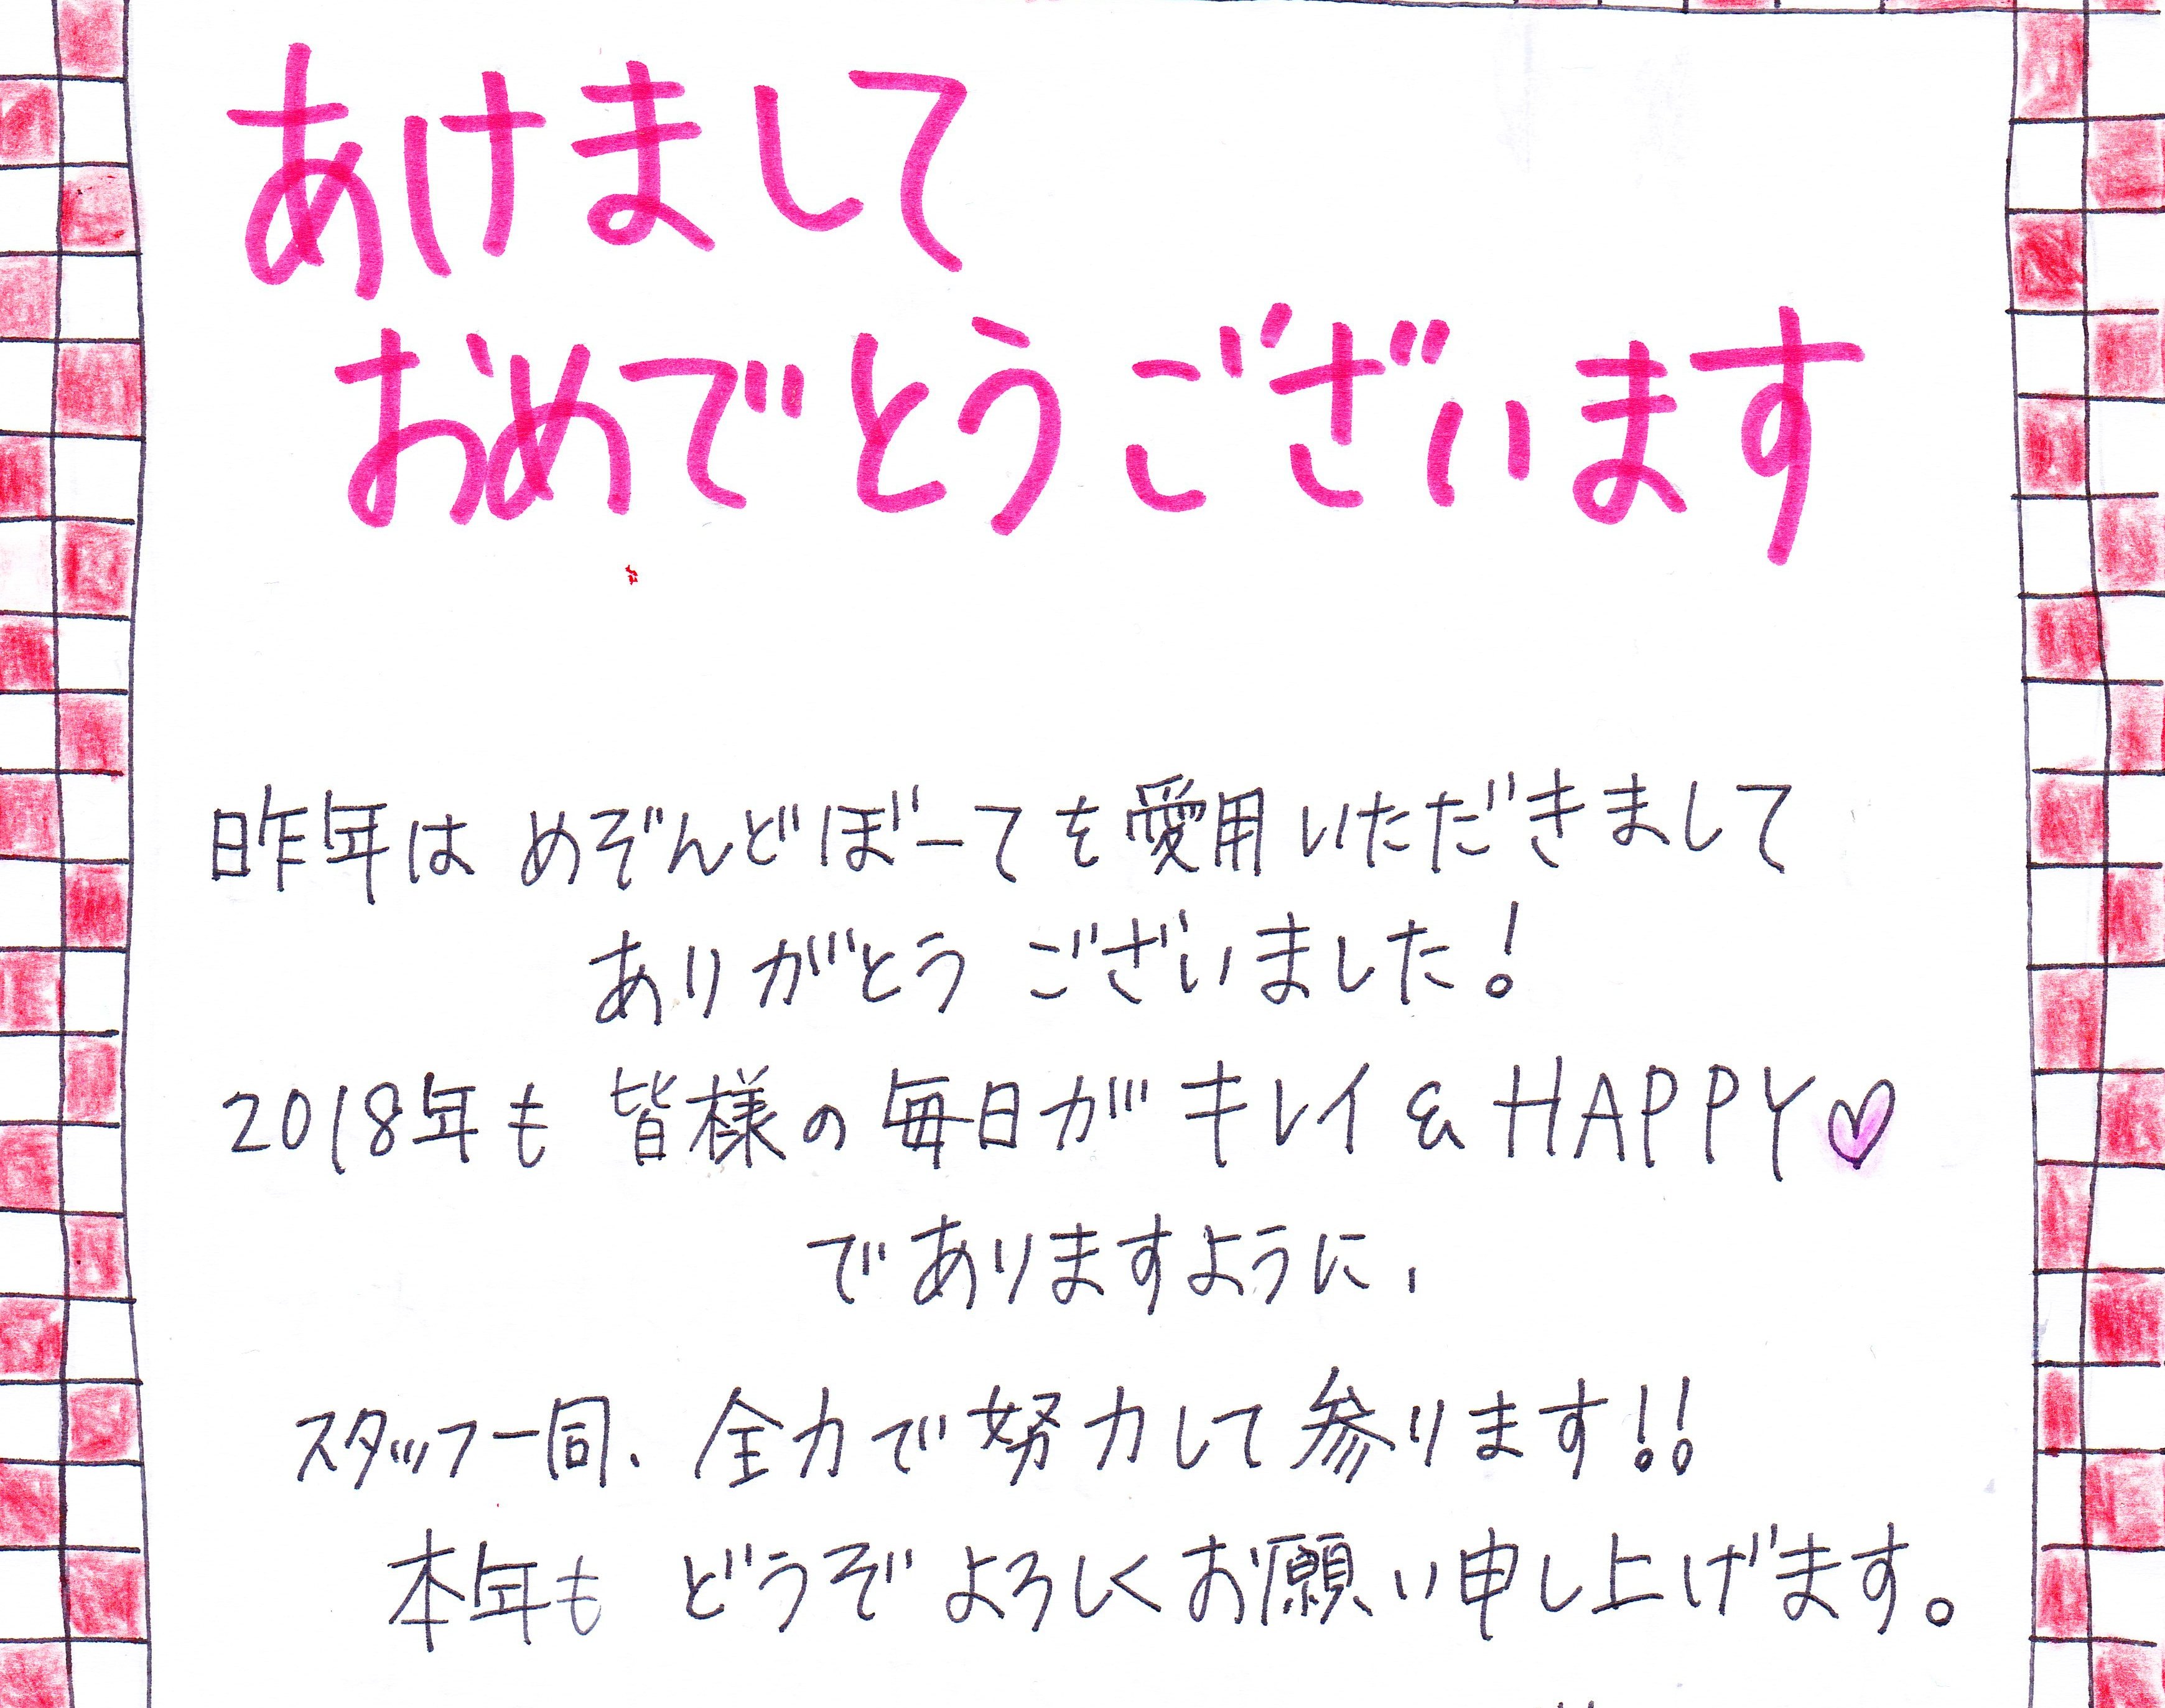 あけまして
おめでとうございます
昨年は めぞんどぼーてを愛用いただきまして
ありがとう ございました!
2018年も 皆様の毎日がキレイ&HAPPY♡
でありますように、
スタッフ一同、全力で努力して参ります!!
本年も どうぞよろしくお願い申し上げます。